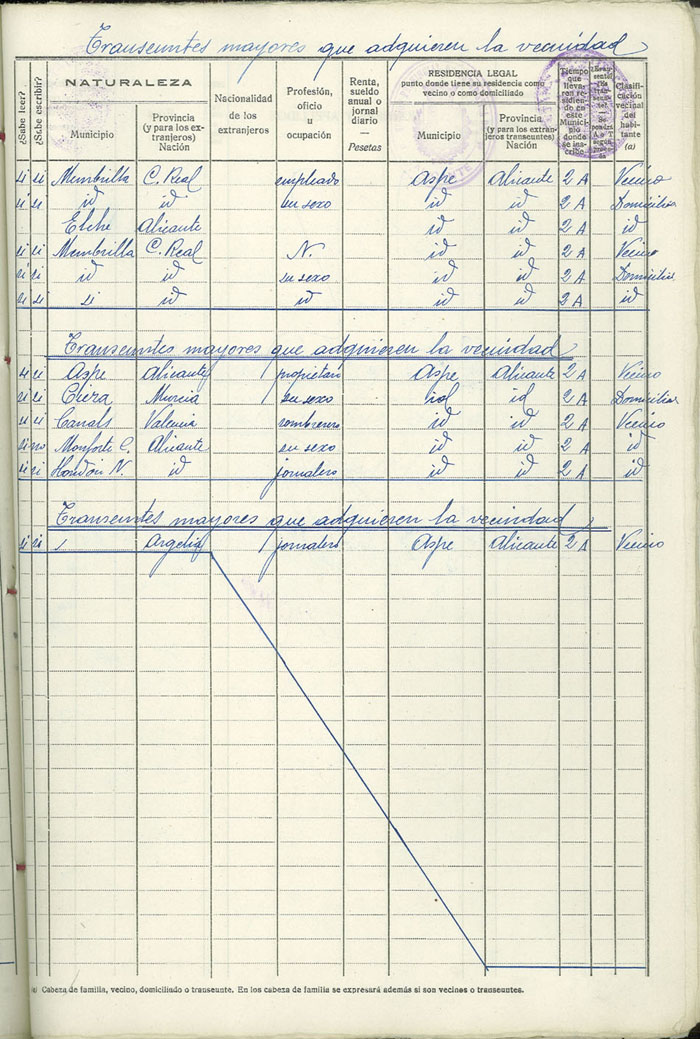 Transeuntes mayores que adquieren la vecindad
¿Sabe leer?
¿Sabe escribir?
NATURALEZA
Municipio
Provincia
(y para los ex-
tranjeros)
Nación
Nacionalidad
de los
extranjeros
Profesión,
oficio
u
ocupación
Renta,
sueldo
anual o
jornal
diario
—
Pesetas
RESIDENCIA LEGAL
punto donde tiene su residencia como
vecino o como domiciliado
Municipio
Provincia
(y para los extran-
jeros transeuntes)
Nación
Tiempo
que
lleva
resi-
diendo
en este
Munici-
pio
donde
se ins-
cribe
Clasifi-
cación
vecinal
del
habi-
tante
(a)
si si Membrilla C. Real empleado Aspe Alicante 2 A Vecino
si si id id su sexo id id 2 A Domicilia
Elche Alicante id id 2 A id
si si Membrilla C. Real N. id id 2 A Vecino
si si id id su sexo id id 2 A Domicilia
si si si id id id id 2 A id
Transeuntes mayores que adquieren la vecindad
si si Aspe Alicante propietari Aspe Alicante 2 A Vecino
si si Cieza Murcia su sexo id id 2 A Domicilia
si si Canals Valencia sombrerero id id 2 A Vecino
si no Monforte C. Alicante su sexo id id 2 A id
si si Hondón N. id jornalero id id 2 A id
Transeuntes mayores que adquieren la vecindad
si si Argelia jornalero Aspe Alicante 2 A Vecino
(a) Cabeza de familia, vecino, domiciliado o transeunte. En los cabeza de familia se expresará además si son vecinos o transeuntes.